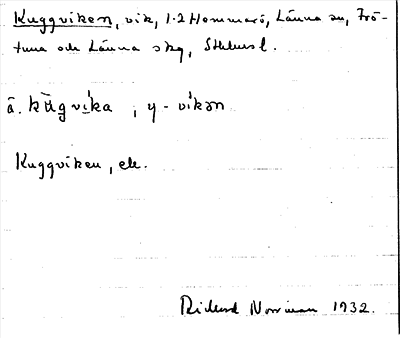 Kuggviken, vik, 1·2 Hemmarö, Länna sn, Frö-
tuna och Länna skg, Sthlms l.
ä. kùgvika ; y - vikən
Kuggviken, ele.
Rickard Norrman 1932.